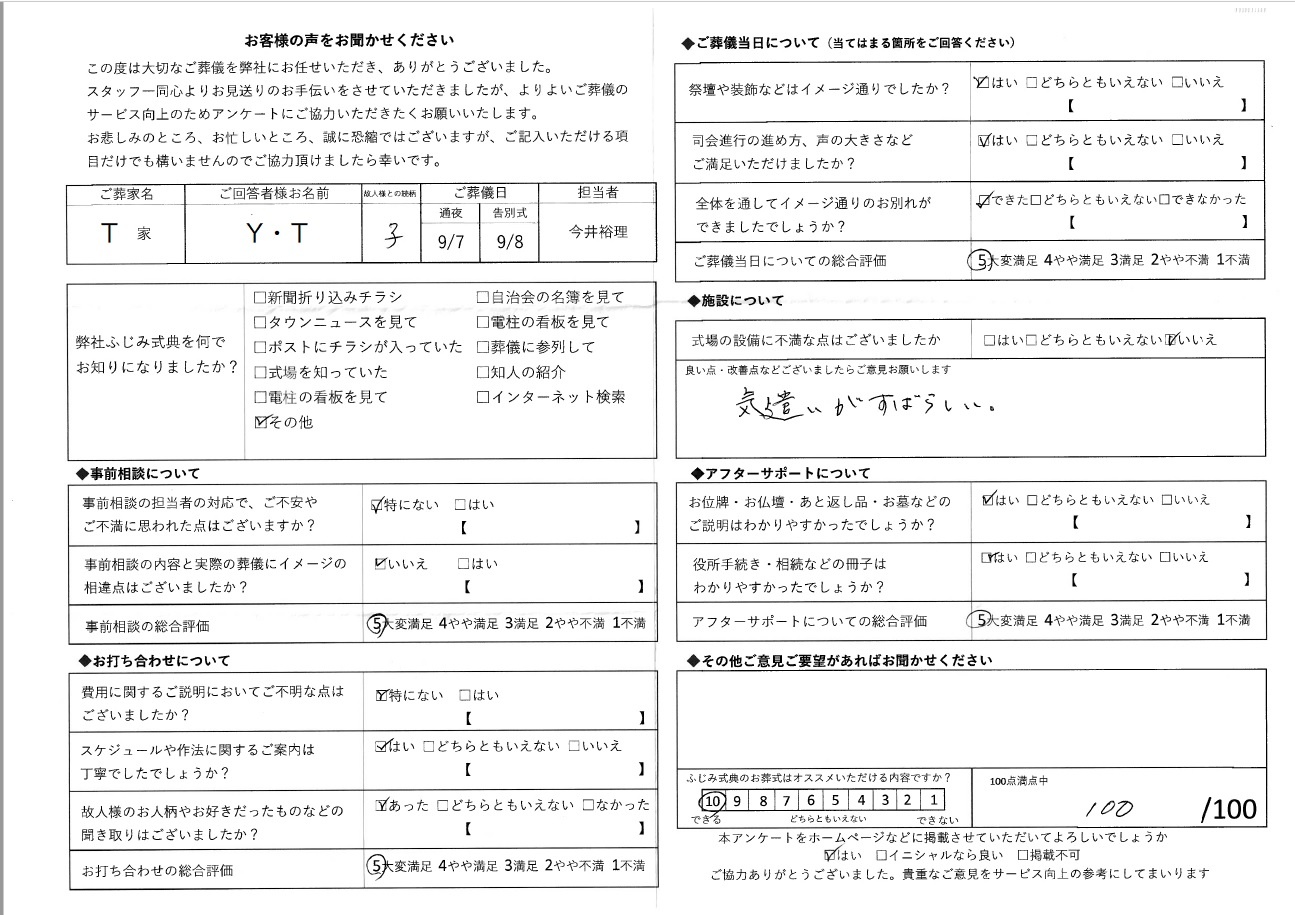 お客様の声をお聞かせください
この度は大切なご葬儀を弊社にお任せいただき、ありがとうございました。
スタッフ一同心よりお見送りのお手伝いをさせていただきましたが、よりよいご葬儀の
サービス向上のためアンケートにご協力いただきたくお願いいたします。
お悲しみのところ、お忙しいところ、誠に恐縮ではございますが、ご記入いただける項
目だけでも構いませんのでご協力頂けましたら幸いです。
ご葬家名 ご回答者様お名前 故人様との続柄 ご葬儀日 担当者
通夜 告別式
T 家 Y・T 子 9/7 9/8 今井裕理
弊社ふじみ式典を何で
お知りになりましたか？
□新聞折り込みチラシ □自治会の名簿を見て
□タウンニュースを見て □電柱の看板を見て
□ポストにチラシが入っていた □葬儀に参列して
□式場を知っていた □知人の紹介
□電柱の看板を見て □インターネット検索
☑その他
◆事前相談について
事前相談の担当者の対応で、ご不安や
ご不満に思われた点はございますか？
☑特にない □はい
【 】
事前相談の内容と実際の葬儀にイメージの
相違点はございましたか？
☑いいえ □はい
【 】
事前相談の総合評価 5大変満足 4やや満足 3満足 2やや不満 1不満
◆お打ち合わせについて
費用に関するご説明においてご不明な点は
ございましたか？
☑特にない □はい
【 】
スケジュールや作法に関するご案内は
丁寧でしたでしょうか？
☑はい □どちらともいえない □いいえ
【 】
故人様のお人柄やお好きだったものなどの
聞き取りはございましたか？
☑あった □どちらともいえない □なかった
【 】
お打ち合わせの総合評価 5大変満足 4やや満足 3満足 2やや不満 1不満
◆ご葬儀当日について（当てはまる箇所をご回答ください）
祭壇や装飾などはイメージ通りでしたか？ ☑はい □どちらともいえない □いいえ
【 】
司会進行の進め方、声の大きさなど
ご満足いただけましたか？
☑はい □どちらともいえない □いいえ
【 】
全体を通してイメージ通りのお別れが
できましたでしょうか？
☑できた□どちらともいえない□できなかった
【 】
ご葬儀当日についての総合評価 5大変満足 4やや満足 3満足 2やや不満 1不満
◆施設について
式場の設備に不満な点はございましたか □はい□どちらともいえない☑いいえ
良い点・改善点などございましたらご意見お願いします
気遣いがすばらしい。
◆アフターサポートについて
お位牌・お仏壇・あと返し品・お墓などの
ご説明はわかりやすかったでしょうか？
☑はい □どちらともいえない □いいえ
【 】
役所手続き・相続などの冊子は
わかりやすかったでしょうか？
☑はい □どちらともいえない □いいえ
【 】
アフターサポートについての総合評価 5大変満足 4やや満足 3満足 2やや不満 1不満
◆その他ご意見ご要望があればお聞かせください
ふじみ式典のお葬式はオススメいただける内容ですか？
10 9 8 7 6 5 4 3 2 1
できる どちらともいえない できない
100点満点中
100 /100
本アンケートをホームページなどに掲載させていただいてよろしいでしょうか
☑はい □イニシャルなら良い □掲載不可
ご協力ありがとうございました。貴重なご意見をサービス向上の参考にしてまいります